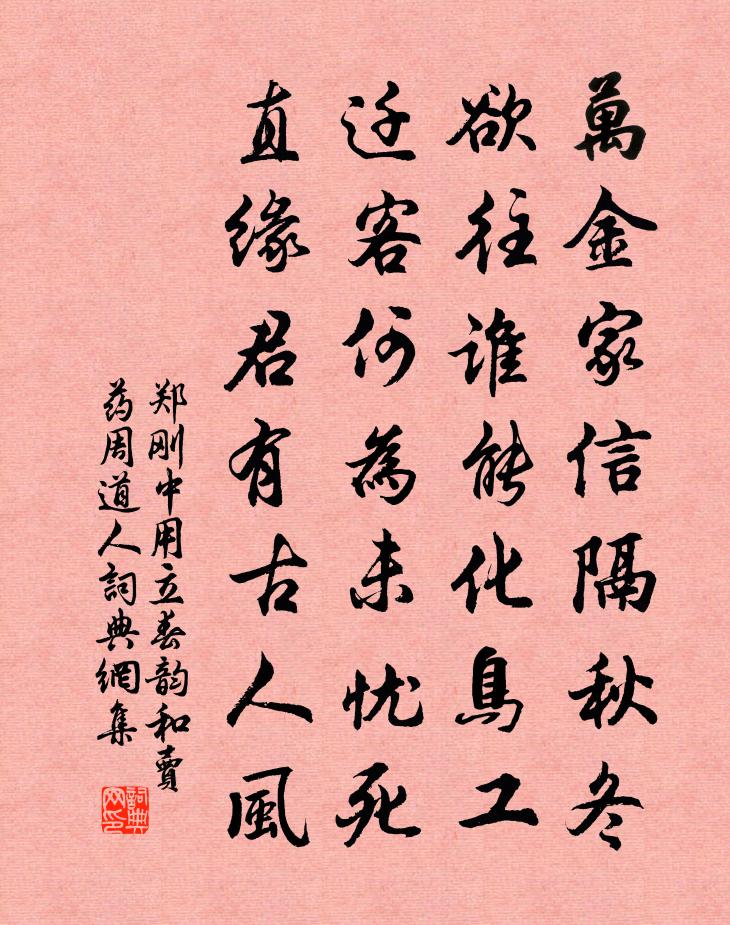 萬金家信隔秋冬
欲往誰能化鳥工
迁客何為未忧死
直缘君有古人風
郑刚中用立春韵和賣
药周道人詞典網集
詞典
网印